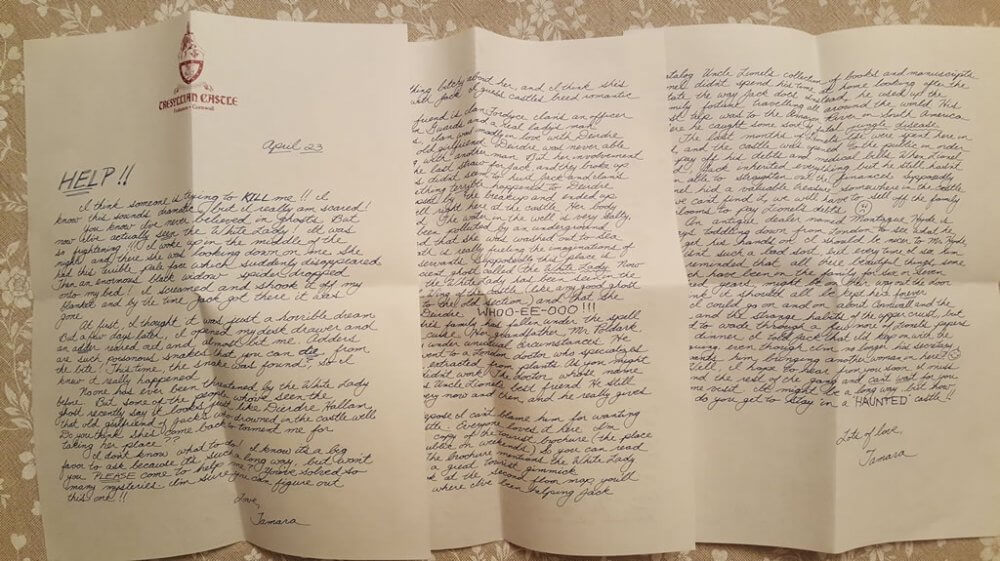 TRESYLLIAN CASTLE
Cornwall
April 23
HELP!!
I think someone is trying to KILL me!! I
know this sounds dramatic, but I really am scared!
You know I've never believed in ghosts. But
now I've actually seen the White Lady! It was
so frightening!!! I woke up in the middle of the
night and there she was looking down on me. She
had this terrible pale face which suddenly disappeared.
Then an enormous black widow spider dropped
onto my bed! I screamed and shook it off my
blanket and by the time Jack got there it was
gone.
At first, I thought it was just a horrible dream.
But a few days later, I opened my desk drawer and
an adder reared out and almost bit me. Adders
are such poisonous snakes that you can die from
the bite! This time, the snake was found, so I
knew it really happened.
No one has ever been threatened by the White Lady
before. But some of the people who've seen the
ghost recently say it looks just like Deirdre Hallam,
that old girlfriend of Jack's who drowned in the castle well.
Do you think she's come back to torment me for
taking her place??
I don't know what to do! I know it's a big
favor to ask because it's such a long way, but won't
you PLEASE come to help me? You've solved so
many mysteries I'm sure you can figure out
this one!!
Love,
Tamara
thing bitchy about her, and I think she's
with Jack. I guess castles breed romantic
friend is Ian Fordyce. Ian's an officer
Guards and a real ladies' man.
Ian was madly in love with Deirdre
old girlfriend. Deirdre was never able
with another man. But her involvement
the last straw for Jack, and they broke up
didn't seem to hurt Jack and Ian's
thing terrible happened to Deirdre
by the breakup and ended up
well right here at the castle. Her body
The water in the well is very salty,
been polluted by an underground
and that she was washed out to sea.
is really fueling the imaginations of
servants. Supposedly this place is
ancient ghost called the White Lady. Now
the White Lady has been seen in the
of the castle (like any good ghost
to the old section) and that she
Deirdre. WHOO-EE-OOO!!!
his family has fallen under the spell
His grandfather, Mr. Poldark,
under unusual circumstances. He
went to a London doctor who specializes
extracted from plants. As you might
didn't work. The doctor, whose name
Uncle Lionel's best friend. He still
every now and then, and he really gives
suppose I can't blame him for wanting
castle. Everyone loves it here. I'm
copy of the tourist brochure (the place
public on weekends) so you can read
The brochure mentions the White Lady
a great tourist gimmick.
at the second floor map you'll
where I've been helping Jack
catalog Uncle Lionel's collection of books and manuscripts.
didn't spend his time at home looking after the
estate the way Jack does. Instead, he used up the
family fortune travelling all around the world. His
last trip was to the Amazon River in South America
where he caught some sort of fatal jungle disease.
The last months of Lionel's life were spent here in
and the castle was opened to the public in order
pay off his debts and medical bills. When Lionel
Jack inherited everything but he still hasn't
able to straighten out the finances. Supposedly
Lionel hid a valuable treasure somewhere in the castle.
can't find it, we will have to sell off the family
heirlooms to pay Lionel's debts.
An antique dealer named Montague Hyde is
always toddling down from London to see what he
get his hands on. I should be nicer to Mr. Hyde,
such a dead sort, but every time I see him
reminded that all these beautiful things, some
which have been in the family for six or seven
hundred years, might be on their way out the door.
it should all be kept here forever.
I could go on and on about Cornwall and the
and the strange habits of the upper crust, but
to wade through a few more of Lionel's papers
dinner. I told Jack that I'd keep on with the
even though I'm no longer his secretary.
him bringing another woman in here?
Well, I hope to hear from you soon. I miss
and the rest of the gang and can't wait for you
come visit. It might be a long way, but how
do you get to stay in a "HAUNTED" castle!!
Lots of love,
Tamara